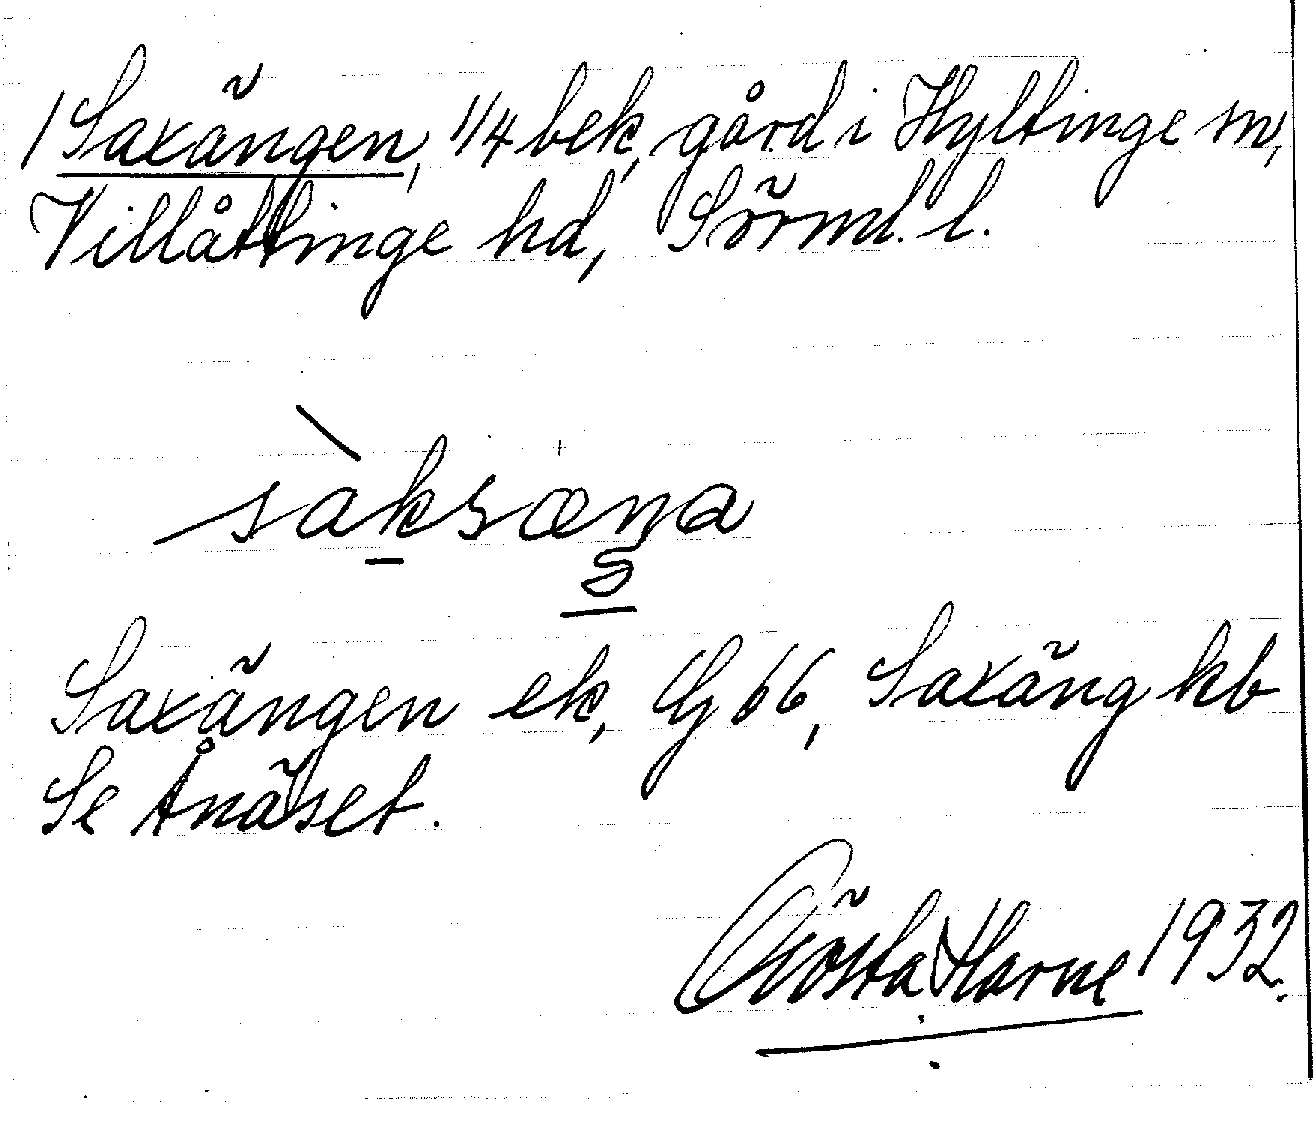 1 Saxängen, 1/4 bek, gård i Hyltinge sn,
Villåttinge hd, Sörml. l.
sàksæŋa
Saxängen ek, Gg 66, Saxäng kb
Se Ånäset.
Gösta Harne 1932.